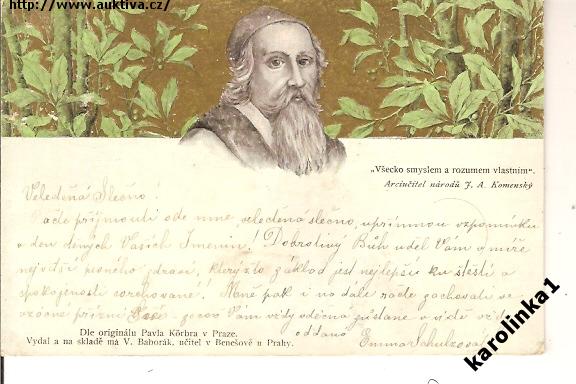 http://www.auktiva.cz/
„Všecko smyslem a rozumem vlastním“.
Arciučitel národů J. A. Komenský
Veleděná Slečno!
račte přijmouti ode mne, veleděná slečno, upřímnou vzpomínku
v den Vašich Jmenin! Dobrotivý Bůh uděl Vám v míře
největší pevného zdraví, který základ jest nejlepší ku štěstí a
spokojenosti Mně pak i na dále račte zachovati ve
vzácné přízni Vám vždy vděčná zůstane
oddaná Emma
Dle originálu Pavla Körbra v Praze.
Vydal a na skladě má V. Baborák, učitel v Benešově u Prahy.
karolinka1